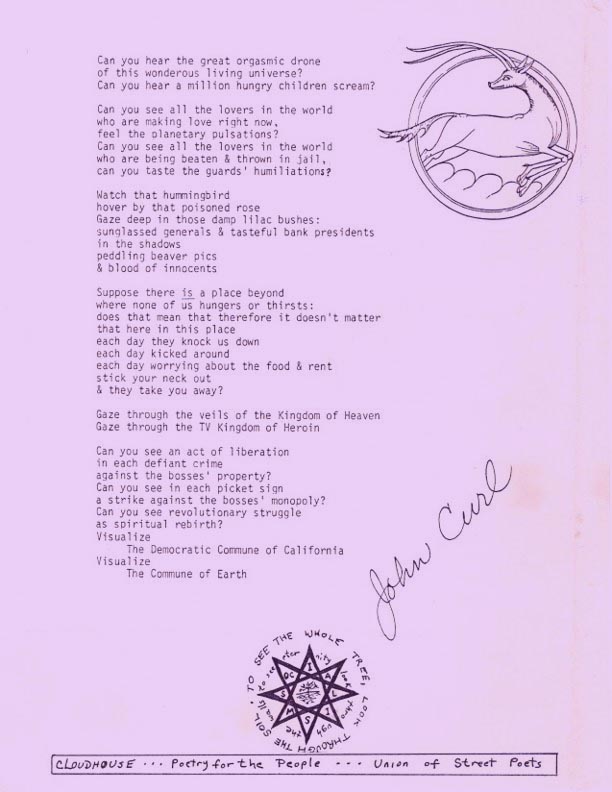 Can you hear the great orgasmic drone
of this wonderous living universe?
Can you hear a million hungry children scream?
Can you see all the lovers in the world
who are making love right now,
feel the planetary pulsations?
Can you see all the lovers in the world
who are being beaten & thrown in jail,
can you taste the guards' humiliations?
Watch that hummingbird
hover by that poisoned rose
Gaze deep in those damp lilac bushes:
sunglassed generals & tasteful bank presidents
in the shadows
peddling beaver pics
& blood of innocents
Suppose there is a place beyond
where none of us hungers or thirsts:
does that mean that therefore it doesn't matter
that here in this place
each day they knock us down
each day kicked around
each day worrying about the food & rent
stick your neck out
& they take you away?
Gaze through the veils of the Kingdom of Heaven
Gaze through the TV Kingdom of Heroin
Can you see an act of liberation
in each defiant crime
against the bosses' property?
Can you see in each picket sign
a strike against the bosses' monopoly?
Can you see revolutionary struggle
as spiritual rebirth?
Visualize
The Democratic Commune of California
Visualize
The Commune of Earth
John Curl
TO SEE THE WHOLE TREE, LOOK THROUGH THE SOIL.
to see eternity look through the walls
SOCIALISM
CLOUDHOUSE ... Poetry for the People --- Union of Street Poets